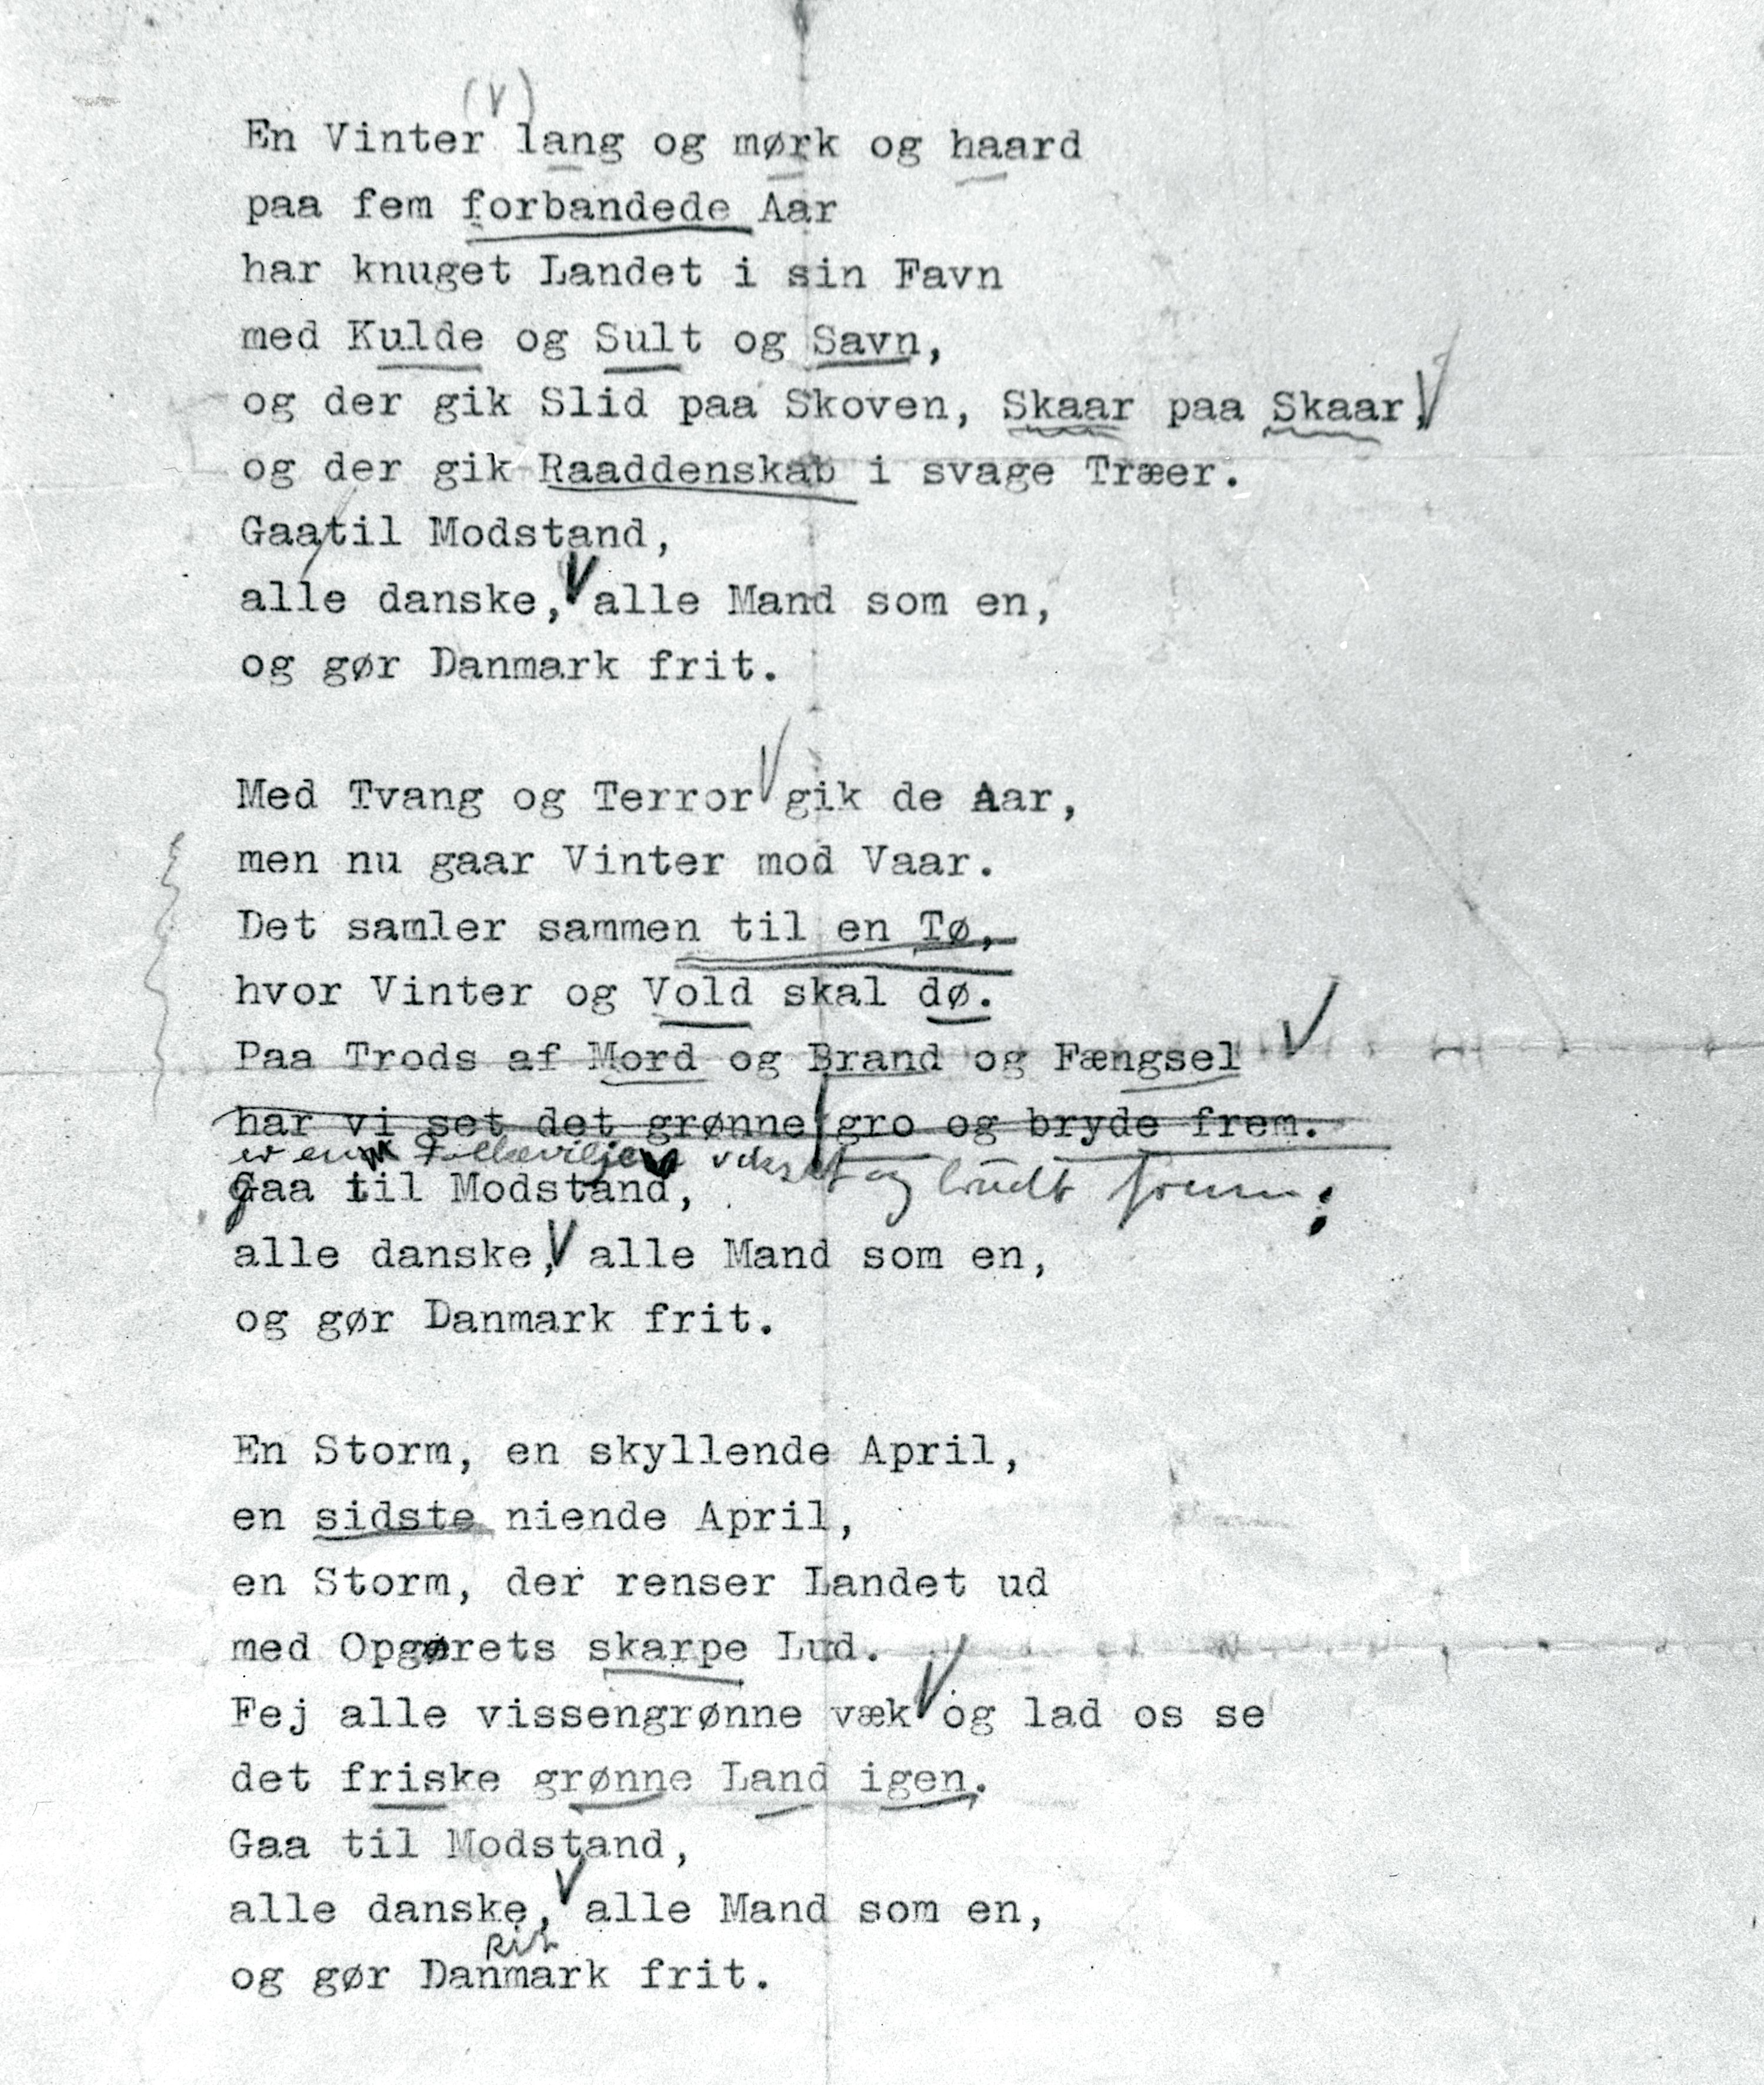 (V)
En Vinter lang og mørk og haard
paa fem forbandede Aar
har knuget Landet i sin Favn
med Kulde og Sult og Savn,
og der gik Slid paa Skoven, Skaar paa Skaar,
og der gik Raaddenskab i svage Træer.
Gaatil Modstand,
alle danske, alle Mand som en,
og gør Danmark frit.
Med Tvang og Terror gik de Aar,
men nu gaar Vinter mod Vaar.
Det samler sammen til en Tø,
hvor Vinter og Vold skal dø.
Paa Trods af Mord og Brand og Fængsel
har vi set det grønne gro og bryde frem.
er en Folkevilje vokset og brudt frem:
Gaa til Modstand,
alle danske, alle Mand som en,
og gør Danmark frit.
En Storm, en skyllende April,
en sidste niende April,
en Storm, der renser Landet ud
med Opgørets skarpe Lud.
Fej alle vissengrønne væk og lad os se
det friske grønne Land igen.
Gaa til Modstand,
alle danske, alle Mand som en,
Rit
og gør Danmark frit.